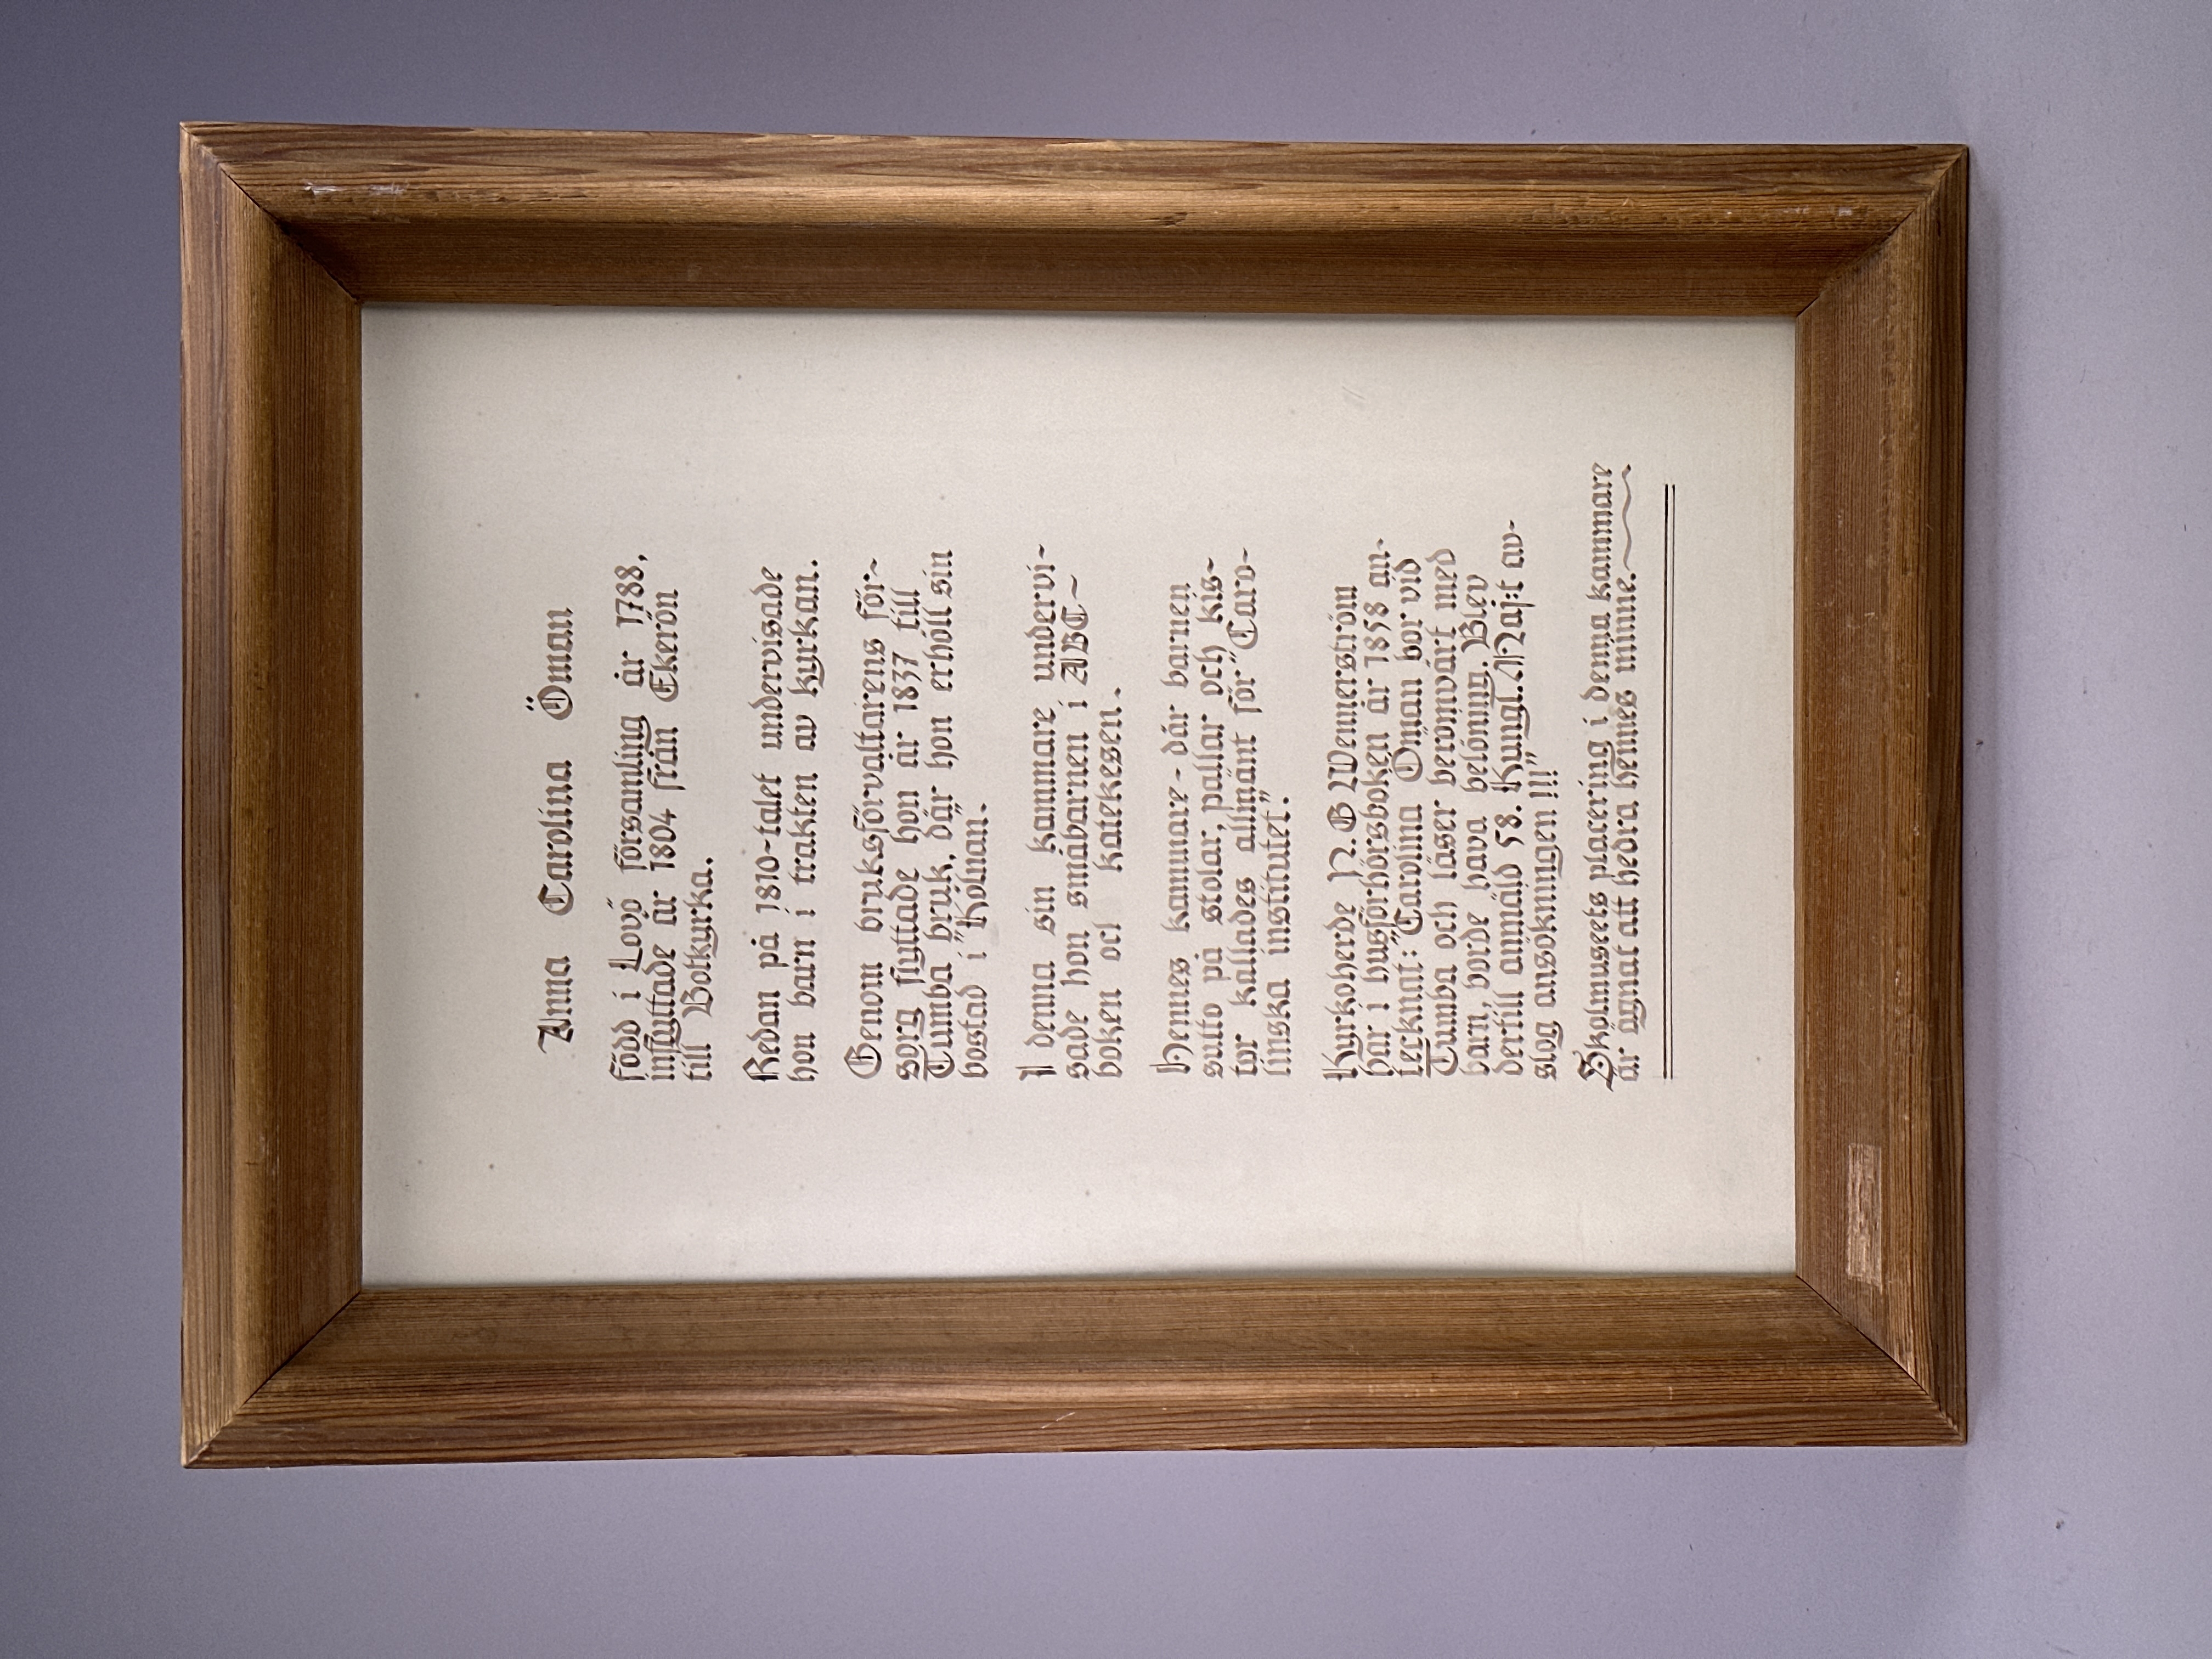 Anna Carolina Öman
född i Lovö församling år 1788,
inflyttade år 1804 från Ekerön
till Botkyrka.
Redan på 1810-talet undervisade
hon barn i trakten av kyrkan.
Genom bruksförvaltarens för-
sorg flyttade hon år 1837 till
Tumba bruk, där hon erhöll sin
bostad i "Kölnan".
I denna sin kammare undervi-
sade hon småbarnen i ABC-
boken och katekesen.
Hennes kammare - där barnen
sutto på stolar, pallar och kis-
tor kallades allmänt för "Caro-
linska institutet".
Kyrkoherde N. G Wennerström
har i husförhörsboken år 1858 an-
tecknat: "Carolina Öman bor vid
Tumba och läser berömvärt med
barn, borde hava belöning. Blev
dertill anmäld 58. Kungl. Maj:t av-
slog ansökningen !!!!"
Skolmuseets placering i denna kammare
är ägnat att hedra hennes minne.